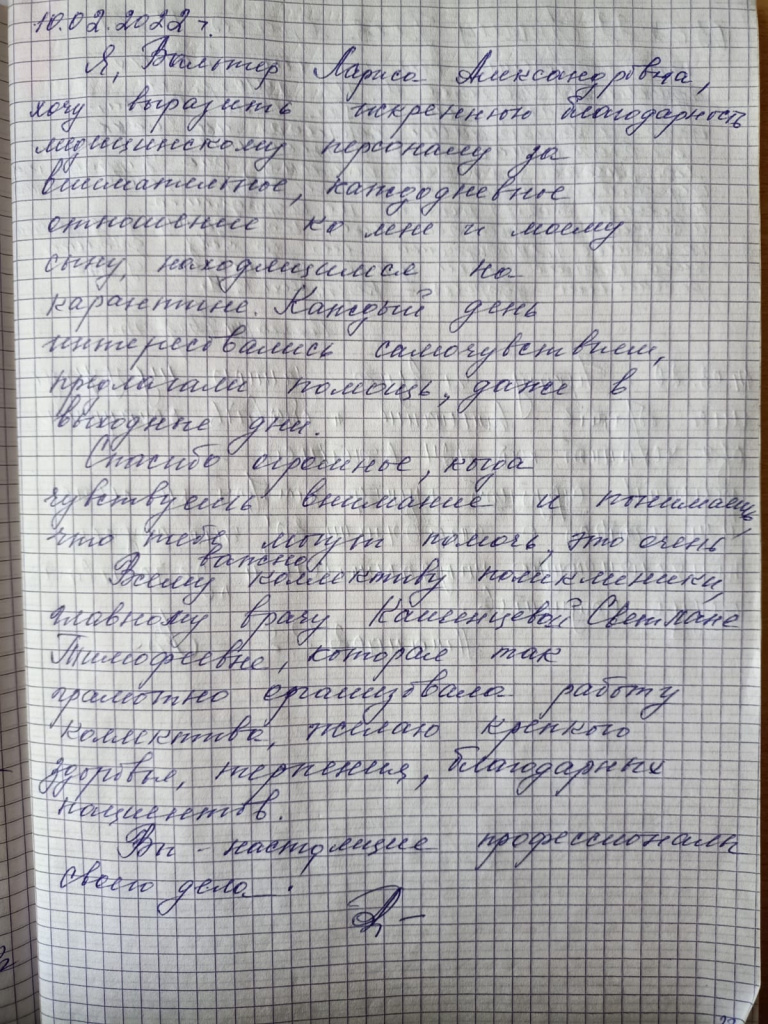 10.02.2022 г.
Я, Вальтер Лариса Александровна,
хочу выразить искреннюю благодарность
медицинскому персоналу за
внимательное, каждодневное
отношение ко мне и моему
сыну, находящимся на
карантине. Каждый день
интересовались самочувствием,
предлагали помощь, даже в
выходные дни.
Спасибо огромное, когда
чувствуешь внимание и понимаешь,
что тебе могут помочь, это очень
важно
Всему коллективу поликлиники,
главному врачу Каменцевой Светлане
Тимофеевне, которая так
грамотно организовала работу
коллектива, желаю крепкого
здоровья, терпения, благодарных
пациентов.
Вы - настоящие профессионалы
своего дела.